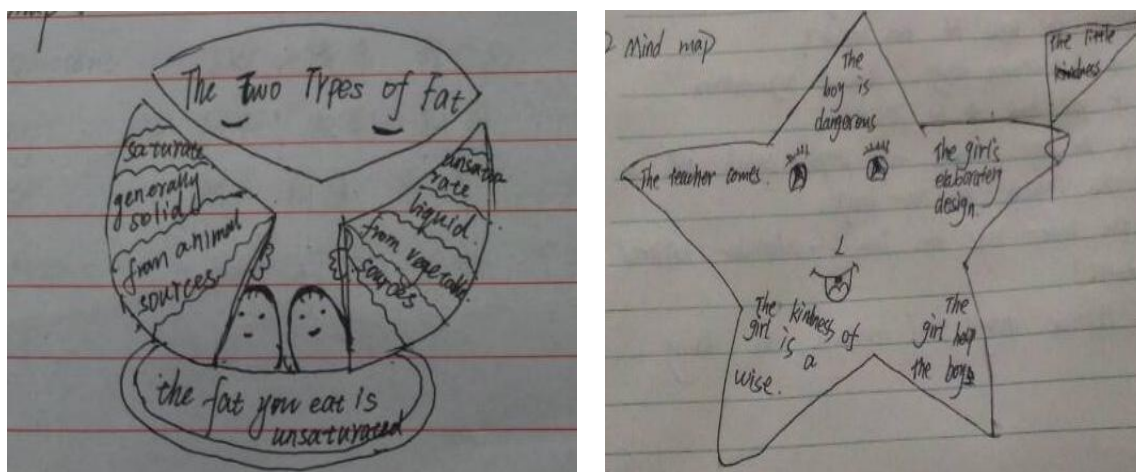 The Two Types of Fat
saturate
generally
solid
from animal
sources
unsatu
rate
liquid.
from vegetable
sources
the fat you eat is
unsaturated
2 Mind map
The little
kindness
The
boy is
dangerous
The teacher comes.
The girl's
elaborately
design.
The kindness of
girl is a
wise.
The
girl help
the boy